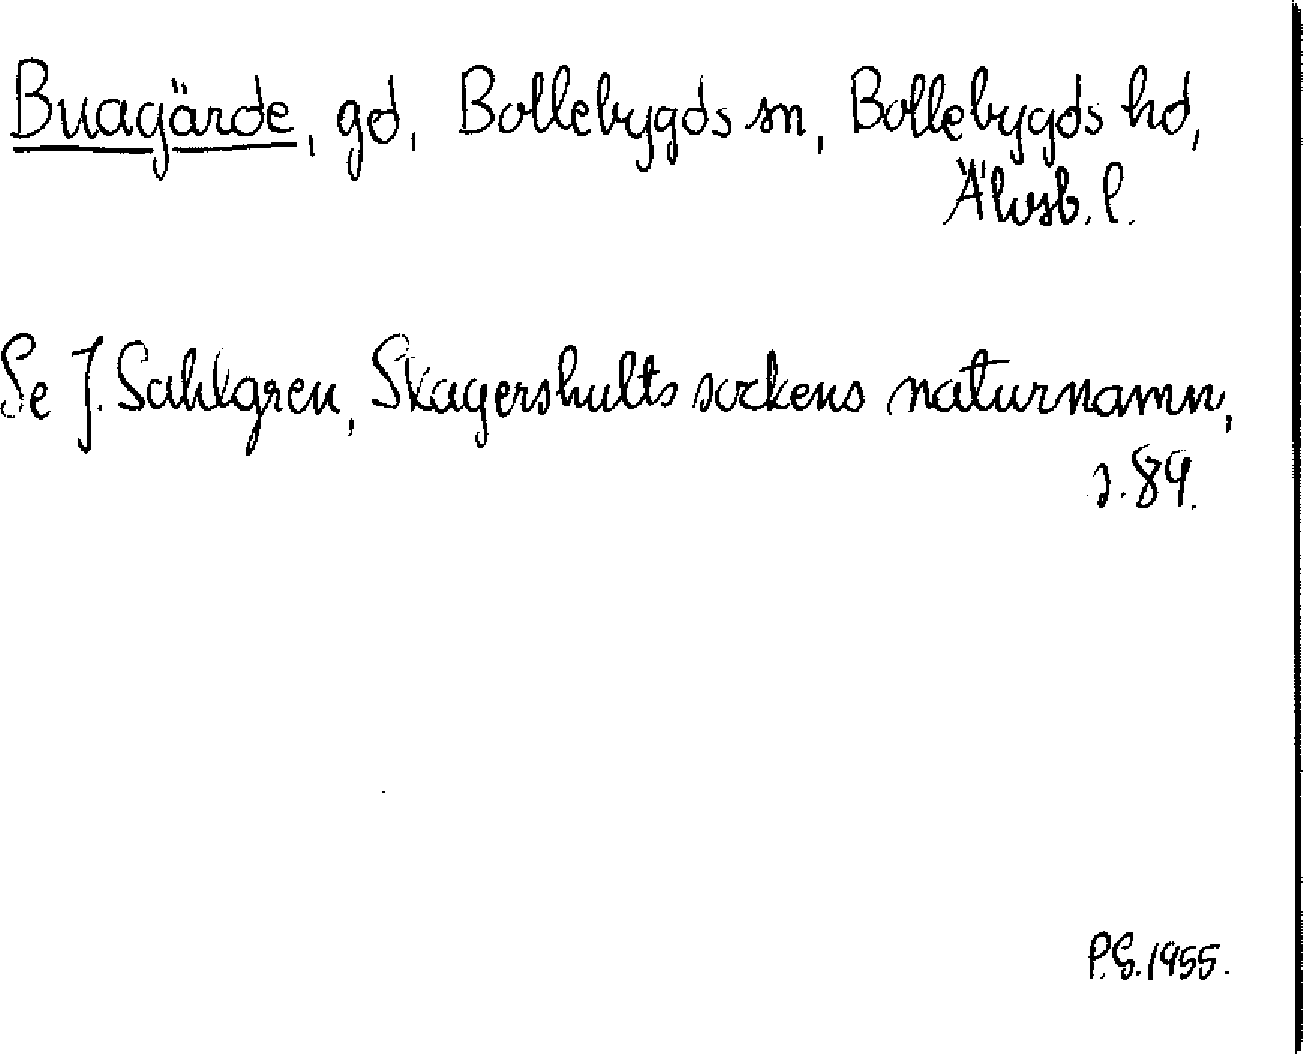 Buagärde, gd, Bollebygds sn, Bollebygds hd,
Älvsb. l.
Se J. Sahlgren, Skagershults sockens naturnamn,
s. 89.
P.S. 1955.